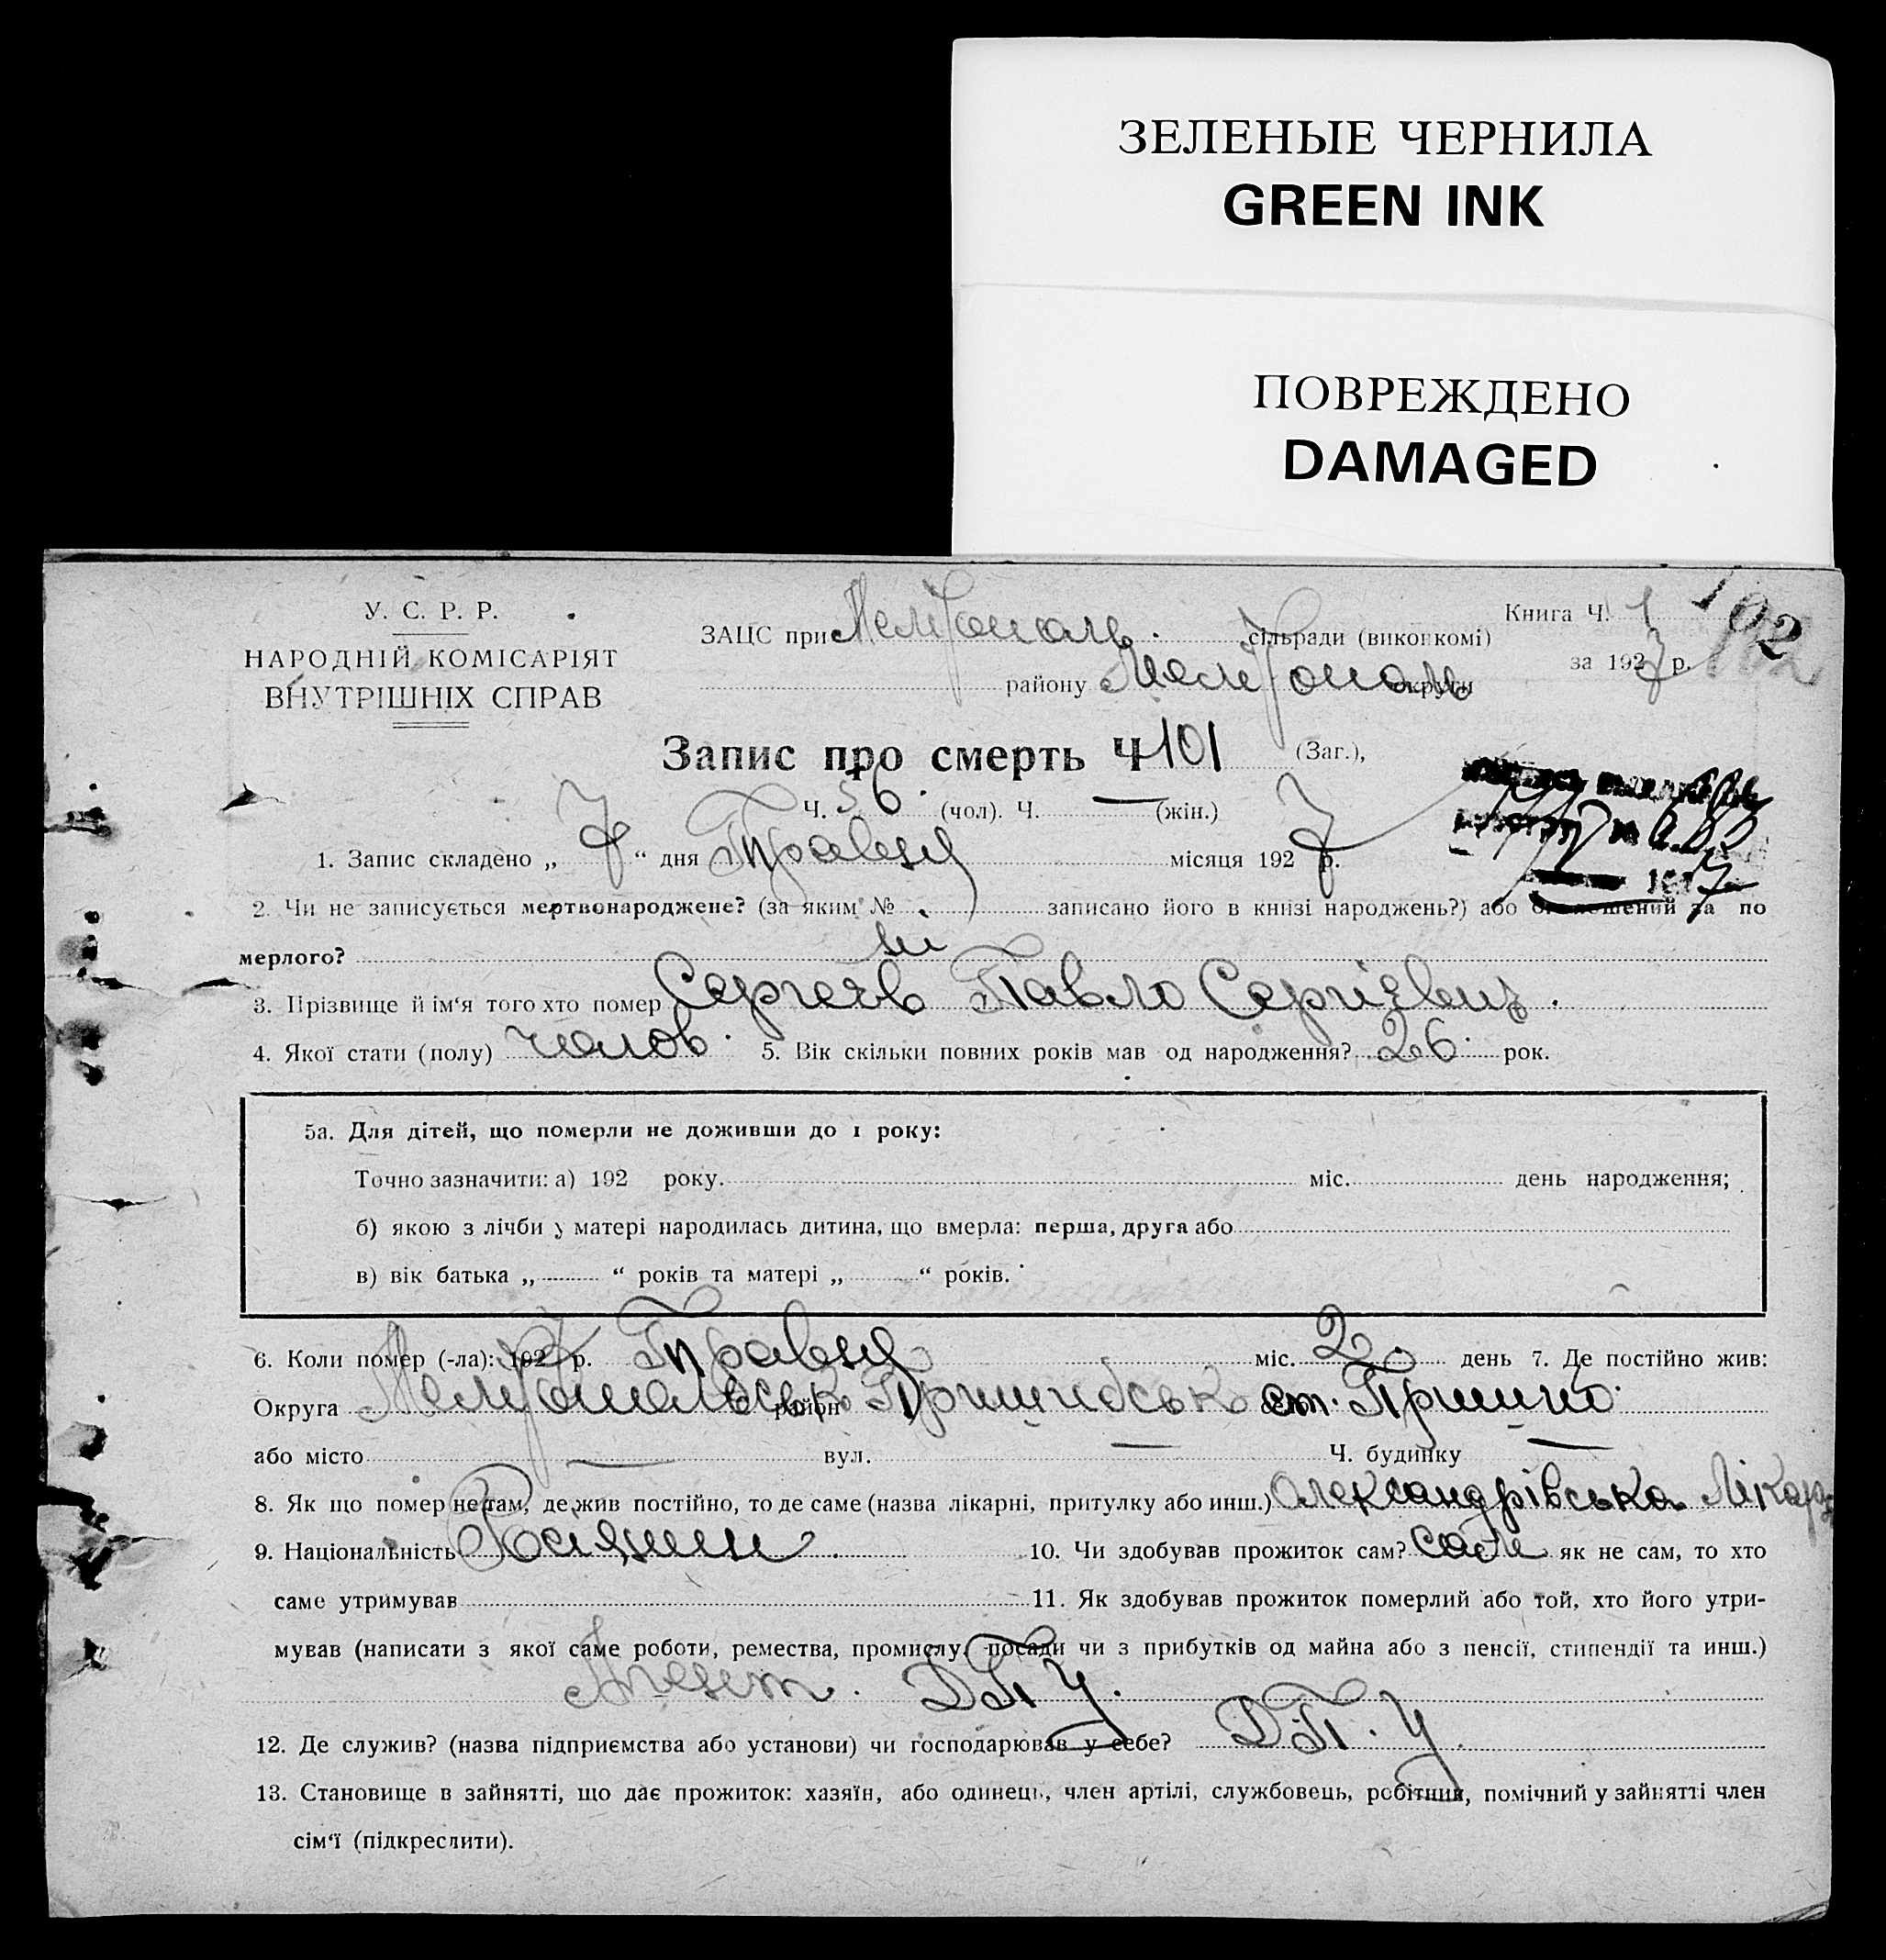 ЗЕЛЕНЫЕ ЧЕРНИЛА
GREEN INK
ПОВРЕЖДЕНО
DAMAGED
У. С. Р. Р.
НАРОДНІЙ КОМІСАРІЯТ
ВНУТРІШНІХ СПРАВ
Книга Ч. 1 102
ЗАЦС при Мелітополь. сільради (виконкомі)
за 1927 р.
району Мелітополь округи
Запис про смерть Ч 101 (Заг.),
Ч. 56. (чол). Ч. — (жін.)
1. Запис складено „ 7 “ дня Травня місяця 1927 р.
2. Чи не записується мертвонароджене? (за яким № записано його в книзі народжень?) або оголошений за по
мерлого? ні
3. Прізвище й ім‘я того хто помер Сергеєв Павло Сергієвич.
4. Якої стати (полу) чолов. 5. Вік скільки повних років мав од народження? 26. рок.
5а. Для дітей, що померли не доживши до 1 року:
Точно зазначити: а) 192 року. міс. день народження;
б) якою з лічби у матері народилась дитина, що вмерла: перша, друга або
в) вік батька „ “ років та матері „ “ років.
6. Коли помер (-ла): 1927 р. Травня міс. 2. день 7. Де постійно жив:
Округа Мелітопольськ район Пришибськ ст. Пришиб.
або місто — вул. — Ч. будинку —
8. Як що помер не там, де жив постійно, то де саме (назва лікарні, притулку або инш.) Олександрівська Лікар
9. Національність 10. Чи здобував прожиток сам? сам як не сам, то хто
саме утримував 11. Як здобував прожиток померлий або той, хто його утри-
мував (написати з якої саме роботи, ремества, промислу, посади чи з прибутків од майна або з пенсії, стипендії та инш.)
Агент. ДПУ.
12. Де служив? (назва підприємства або установи) чи господарював у себе? ДП.У.
13. Становище в зайнятті, що дає прожиток: хазяїн, або одинець, член артілі, службовець, робітник, помічний у зайнятті член
сім‘ї (підкреслити).